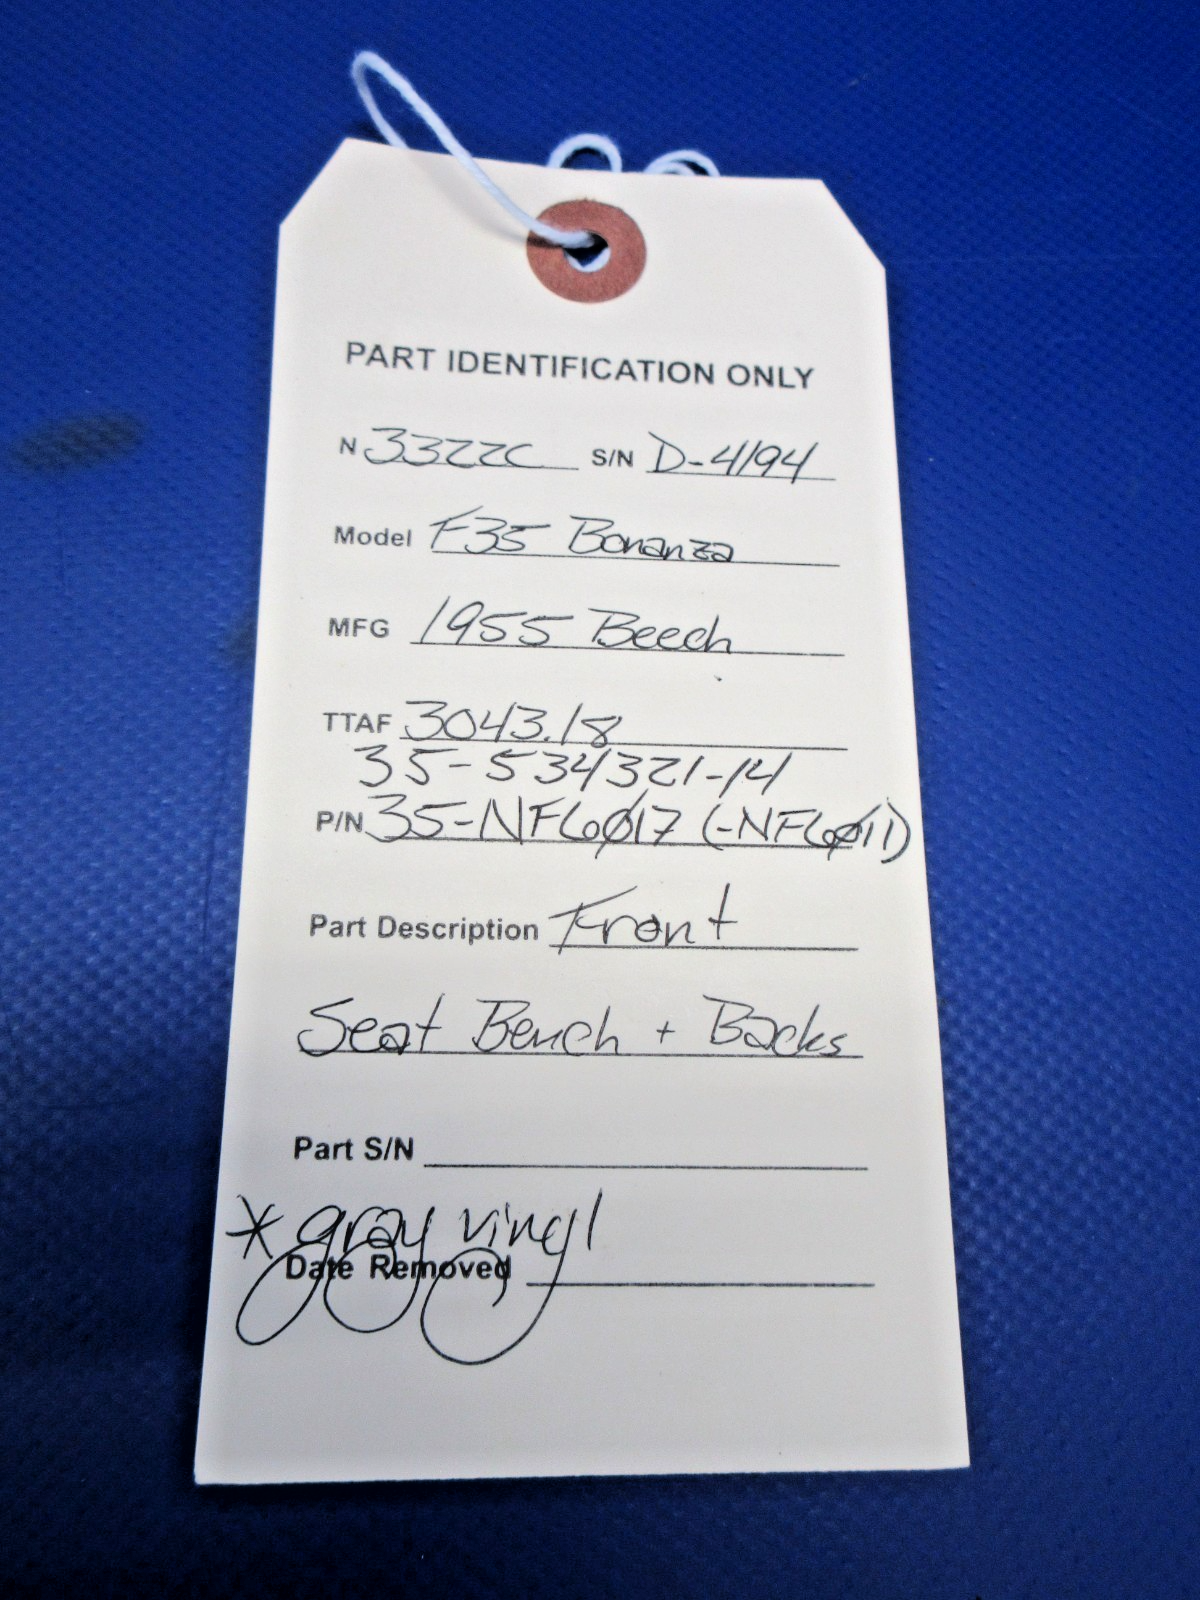 PART IDENTIFICATION ONLY
N 3322C S/N D-4194
Model F35 Bonanza
MFG 1955 Beech
TTAF 3043.18
35-534321-14
P/N 35-NF6017 (-NF6011)
Part Description Front
Seat Bench + Backs
Part S/N
* gray vinyl
Date Removed